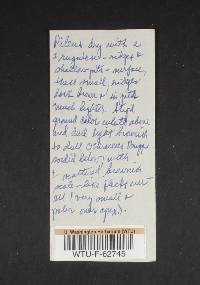 Pileus dry with a
rugulose - ridges &
shallow pits - surface,
these small, ridges
dark brown & in pits
much lighter. Stipe
ground color whitish above
and dark light brownish
to dull
below with
± matted brownish
scale-like flecks over
all (very small &
paler near apex).
U. Washington Herbarium (WTU)
WTU-F-62745